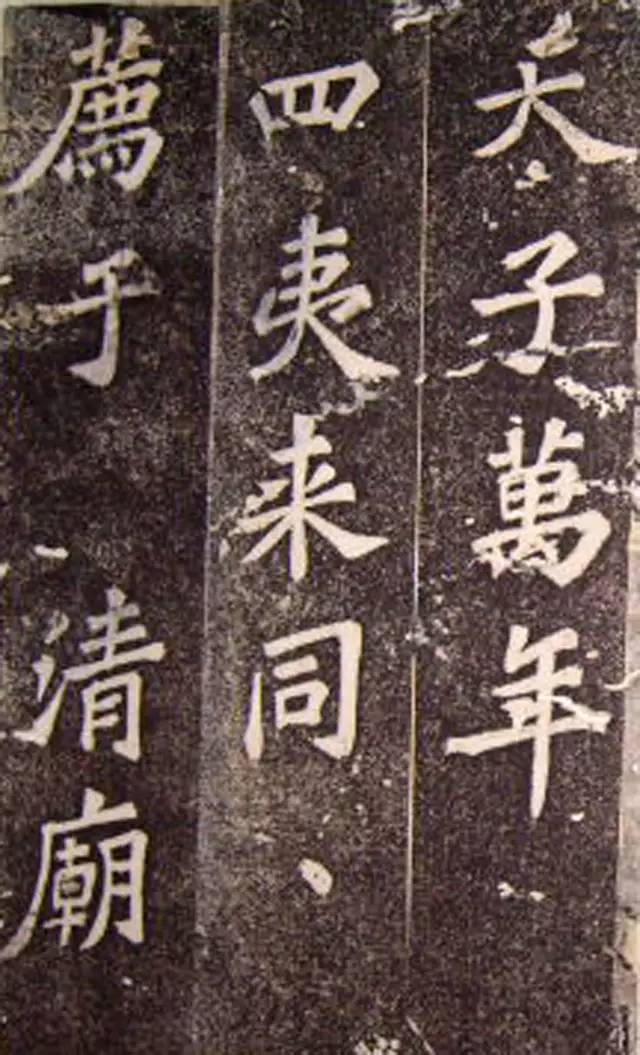 天子萬年
四夷来同、
薦于清廟